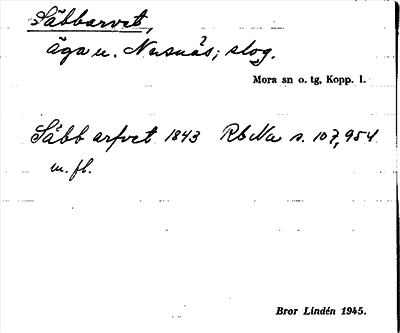 Säbbarvet,
äga u. Nusnäs; skog.
Mora sn o. tg, Kopp. l.
Säbb arfvet 1843 RbNu s. 107, 954
m. fl.
Bror Lindén 1945.